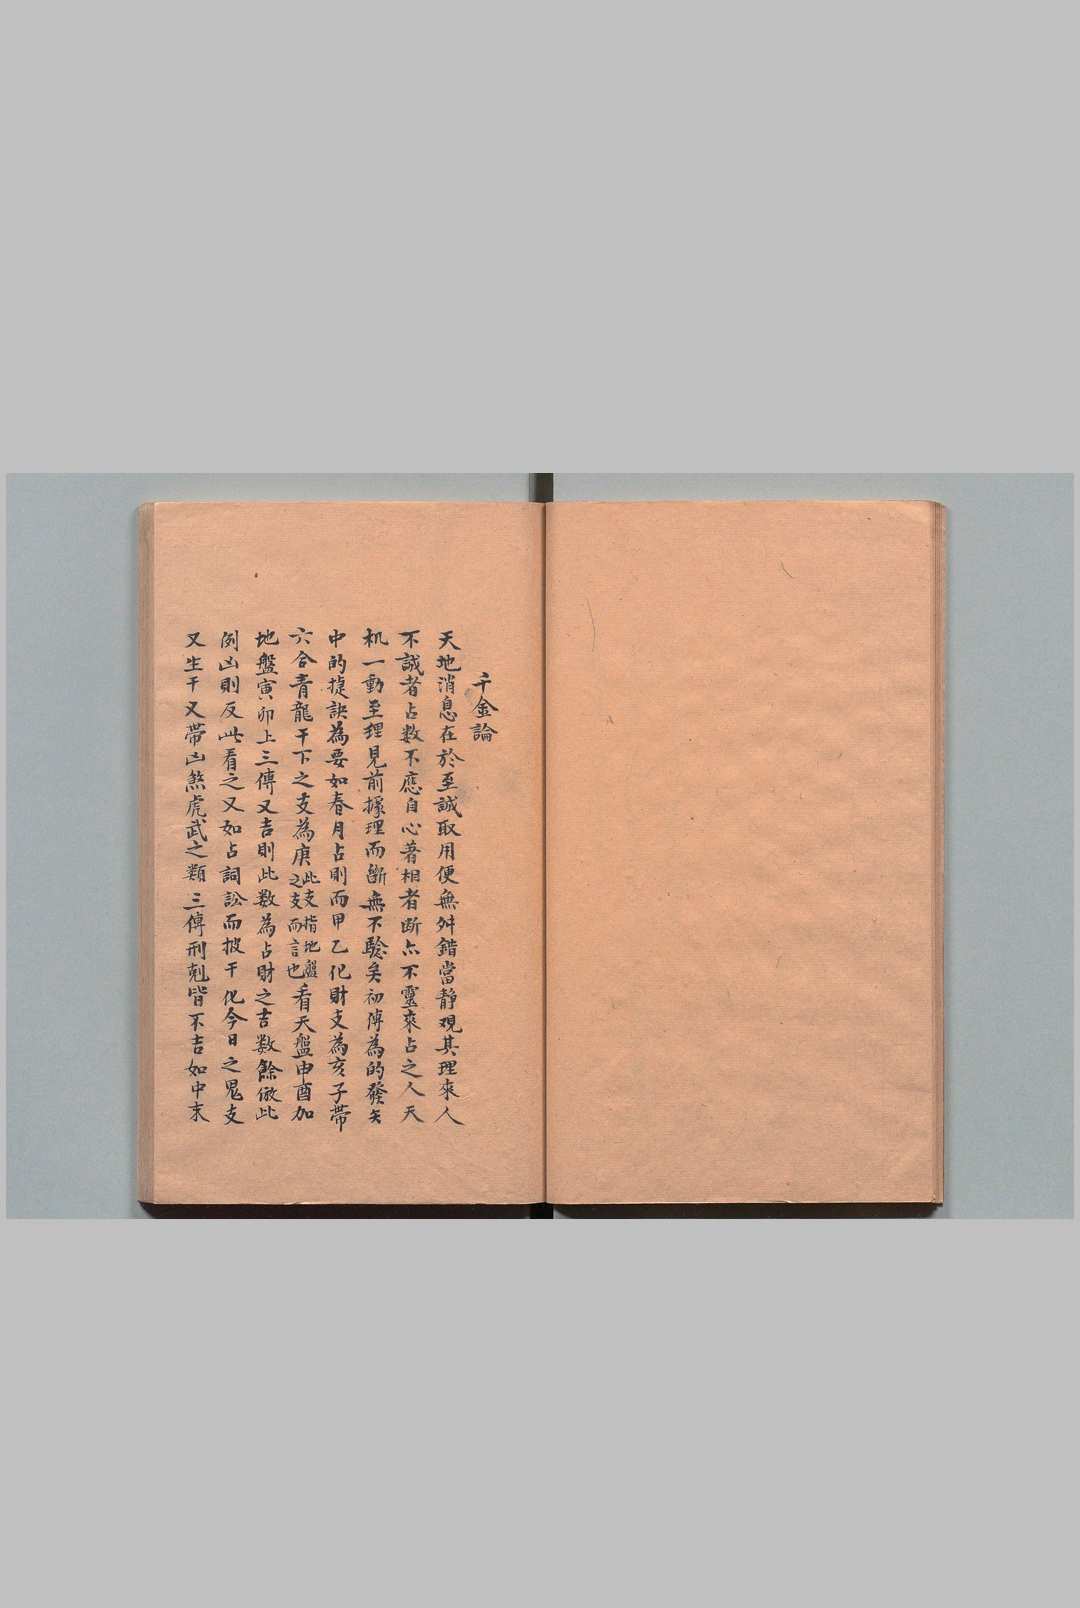 千金論
天地消息在於至誠取用便無舛錯當靜观其理來人
不誠者占数不應自心著相者断亦不靈來占之人天
机一動至理見前據理而斷無不驗矣初傳為的發矢
中的提訣為要如春月占則而甲乙化財支為亥子帶
六合青龍干下之支為庚此支指地盤之支而言也看天盤申酉加
地盤寅卯上三傳又吉則此数為占財之吉数餘倣此
例凶則反此看之又如占詞訟而披干化今日之鬼支
又生干又帶凶煞虎武之類三傳刑剋皆不吉如中末